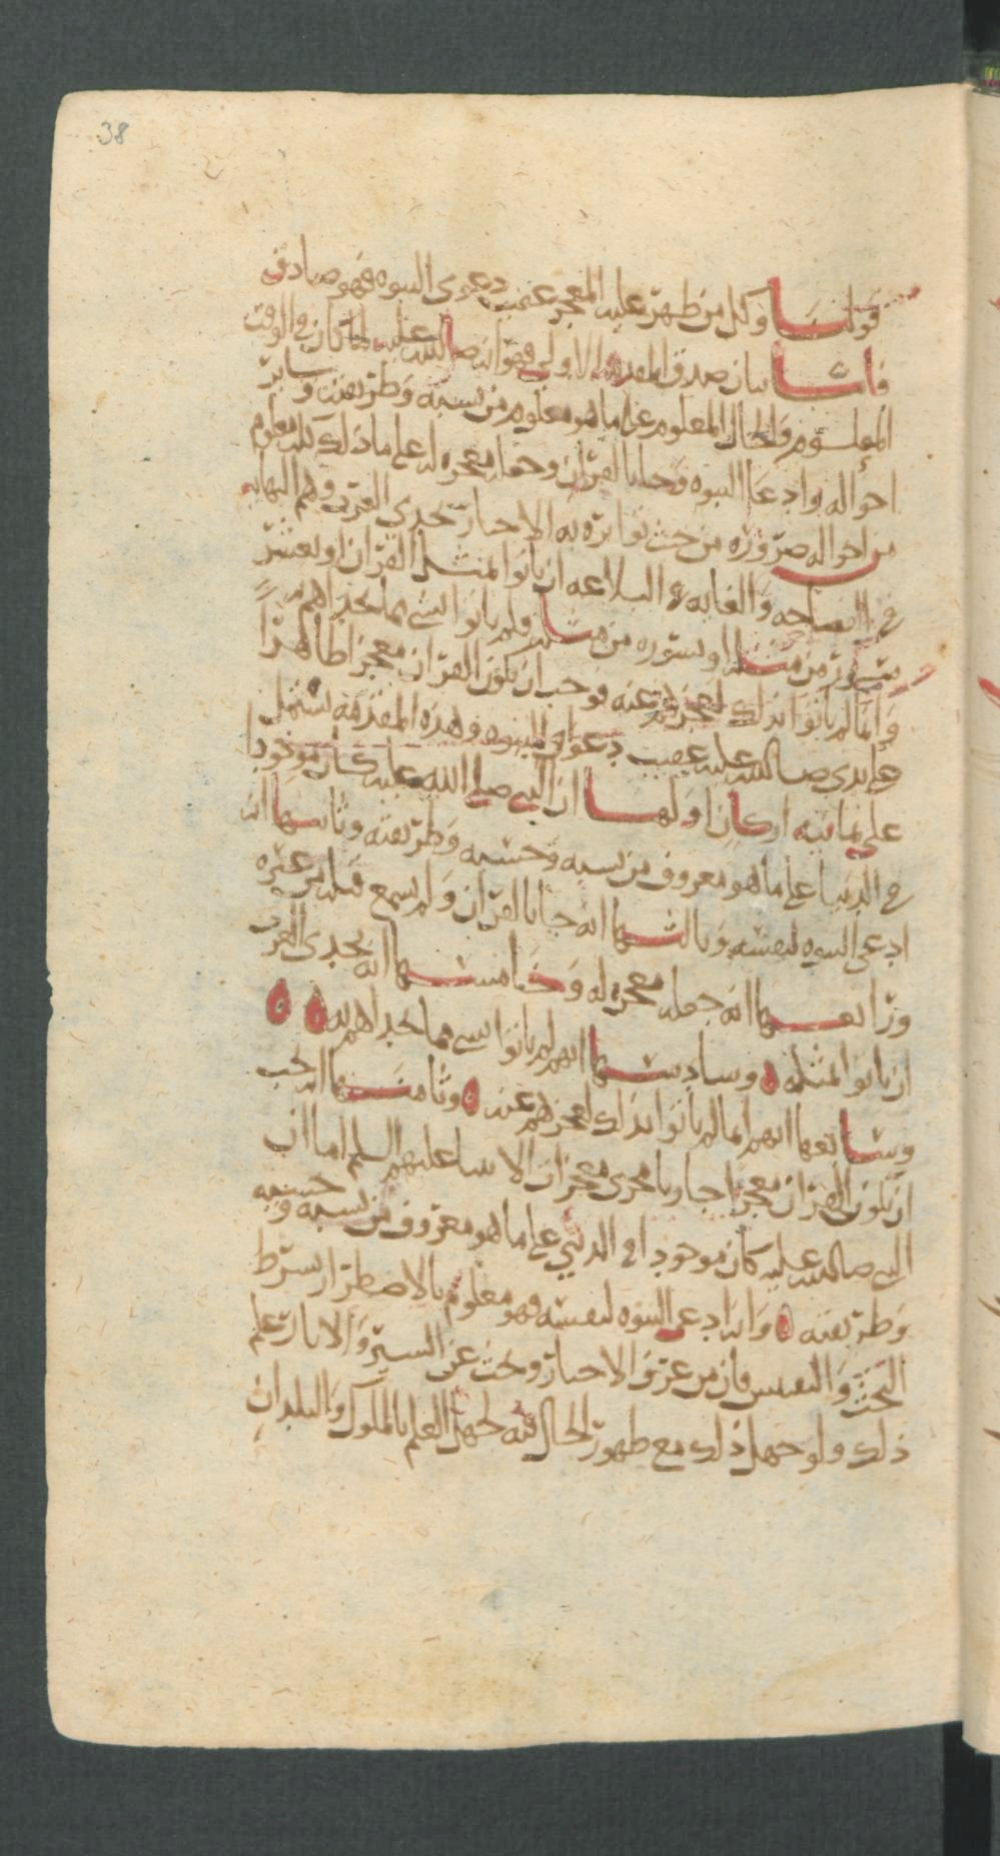 38
قولنا وكل من ظهر عليه المعجز عقيب دعوى النبوه فهو صادق
فاما بيان صدق المقدمه الاولى فهو انه صلى الله عليه لما كان في الوقت
المعلوم والحال المعلوم على ما هو معلوم من نسبه وطريقته وساير
احواله وادعا النبوه وجانا بالقران وجعله معجزه له على ما ذلك كله معلوم
من احواله ضروره من حيث تواتره به الاخبار تحدي العرب وهم النهايه
في الفصاحه والغايه في البلاغه ان ياتوا بمثل القران او بعشر
سور من مثله او بسوره من مثله فلم ياتوا بشي مما تحداهم به
وانما لم ياتوا بذلك لعجزهم عنه فوجب ان يكون القران معجزا ظاهرا
على يدي صلى الله عليه عقيب دعواه النبوه وهذه المقدمه تشتمل
على ثمانيه اركان اولها ان النبي صلى الله عليه كان موجودا
في الدنيا على ما هو معروف من نسبه وحسبه وطريقته وثانيها انه
ادعى النبوه لنفسه وثالثها انه جانا بالقران ولم يسمع قبله من غيره
ورابعها انه جعله معجزه له وخامسها انه تحدى العرب
ان ياتوا بمثله وسادسها انهم لم ياتوا بشي مما تحداهم به
وسابعها انهم انما لم ياتوا بذلك لعجزهم عنه وثامنها انه يجب
ان يكون القران معجزا جاريا مجرى معجزات الانبيا عليهم السلم اما ان
النبي صلى الله عليه كان موجودا في الدنيي على ما هو معروف من نسبه وحسبه
وطريقته وانه ادعى النبوه لنفسه فهو معلوم بالاضطرار بشرط
البحث والتفتيش فان من عرف الاخبار وبحث عن السير والاثار علم
ذلك ولو جهل ذلك مع ظهور الحال فيه لجهل العلم بالملوك والبلدان